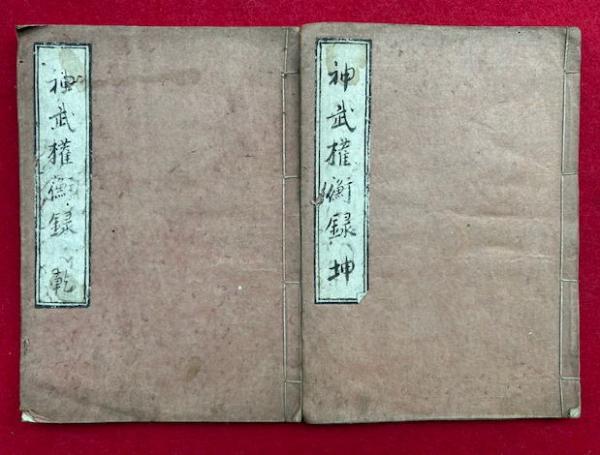 神武權衡録 乾
神武權衡録 坤